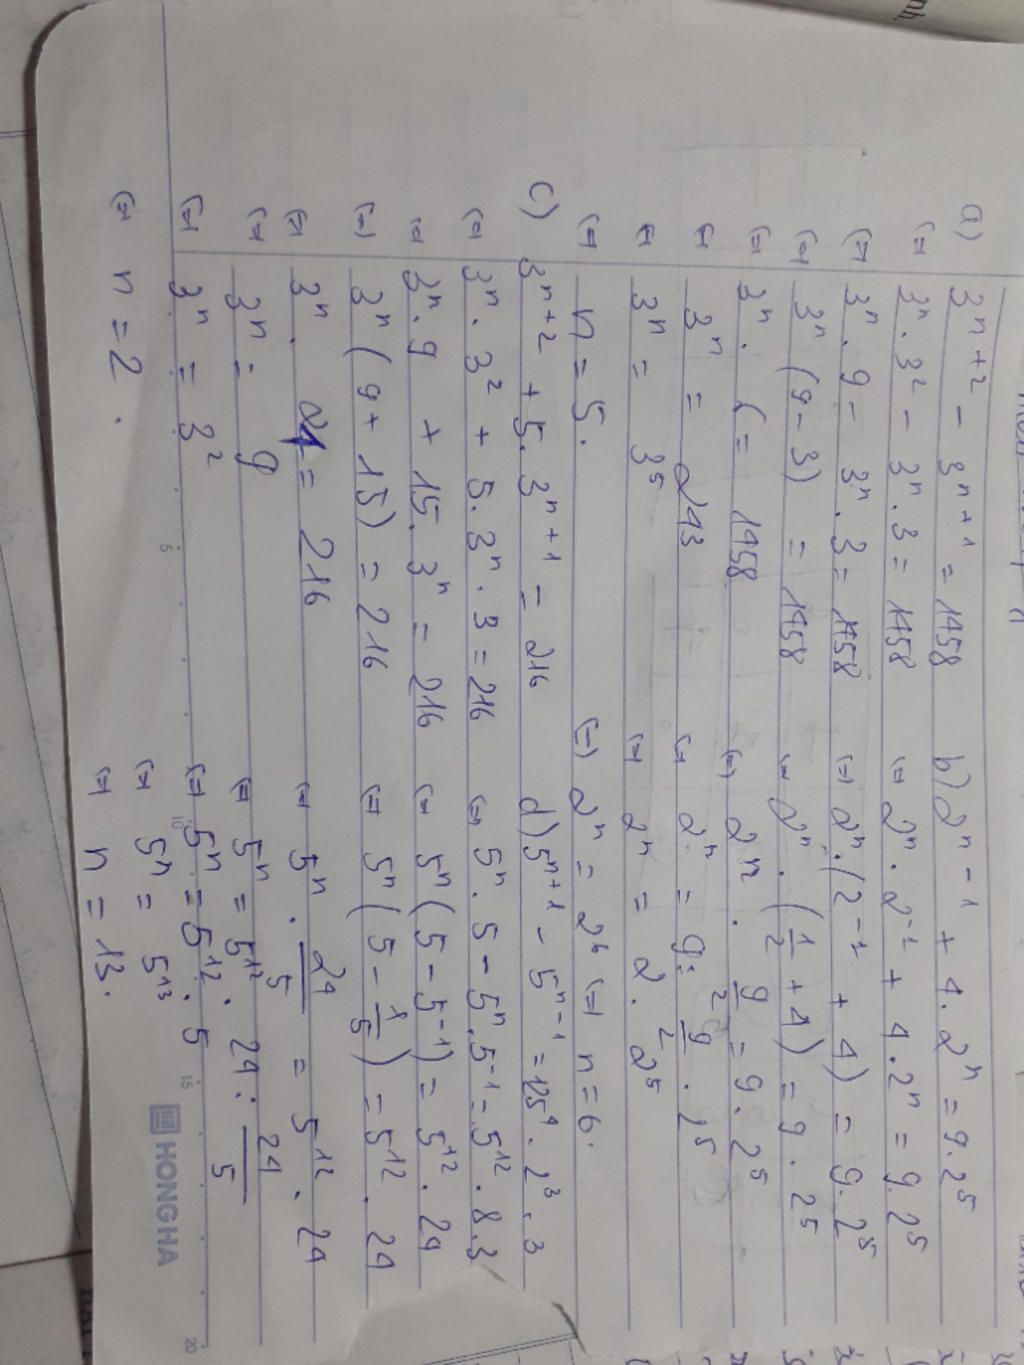 a) 3^{n+2} - 3^{n+1} = 1458
(=) 3^n . 3^2 - 3^n . 3 = 1458
(=) 3^n . 9 - 3^n . 3 = 1458
(=) 3^n (9 - 3) = 1458
(=) 3^n . 6 = 1458
(=) 3^n = 243
(=) 3^n = 3^5
(=) n = 5.
b) 2^{n-1} + 4 . 2^n = 9 . 2^5
(=) 2^n . 2^{-1} + 4 . 2^n = 9 . 2^5
(=) 2^n . (2^{-1} + 4) = 9 . 2^5
(=) 2^n . (1/2 + 4) = 9 . 2^5
(=) 2^n . 9/2 = 9 . 2^5
(=) 2^n = 9 : 9/2 . 2^5
(=) 2^n = 2 . 2^5
(=) 2^n = 2^6 (=) n = 6.
c) 3^{n+2} + 5 . 3^{n+1} = 216
(=) 3^n . 3^2 + 5 . 3^n . 3 = 216
(=) 3^n . 9 + 15 . 3^n = 216
(=) 3^n (9 + 15) = 216
(=) 3^n . 24 = 216
(=) 3^n = 9
(=) 3^n = 3^2
(=) n = 2 .
d) 5^{n+1} - 5^{n-1} = 125^4 . 2^3 . 3
(=) 5^n . 5 - 5^n . 5^{-1} = 5^{12} . 8 . 3
(=) 5^n (5 - 5^{-1}) = 5^{12} . 24
(=) 5^n (5 - 1/5) = 5^{12} . 24
(=) 5^n . 24/5 = 5^{12} . 24
(=) 5^n = 5^{12} . 24 : 24/5
(=) 5^n = 5^{12} . 5
(=) 5^n = 5^{13}
(=) n = 13.
5 10 15 20
HONG HA